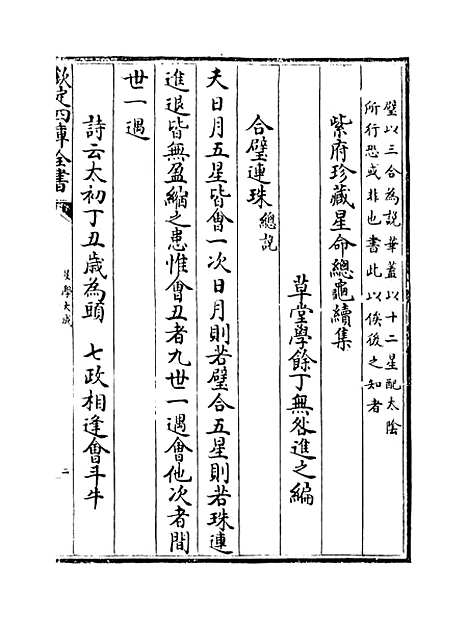 璧以三合為說華蓋以十二星配太陰
所行恐或非也書此以俟後之知者
紫府珍藏星命總龜續集
草堂學餘丁無咎進之編
合璧連珠總說
夫日月五星皆會一次日月則若璧合五星則若珠連
進退皆無盈縮之患惟會丑者九世一遇會他次者間
世一遇
詩云太初丁丑歲為頭　七政相逢會斗牛
欽定四庫全書
星學大成
二